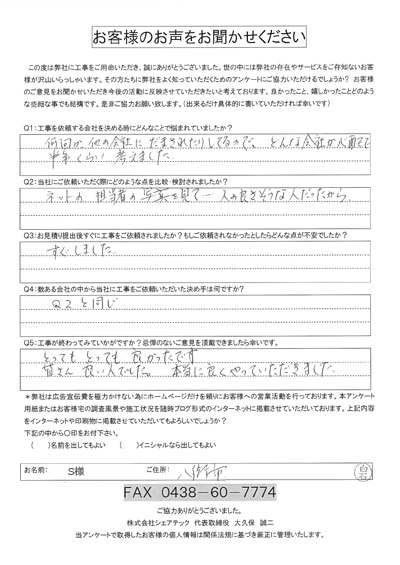 お客様のお声をお聞かせください
この度は弊社に工事をご用命いただき、誠にありがとうございました。世の中には弊社の存在やサービスをご存知ないお客
様が沢山いらっしゃいます。その方たちに弊社をよく知っていただくためのアンケートにご協力いただけるでしょうか？ お客様
のご意見をお聞かせいただき今後の活動に反映させていただきたいと考えております。良かったこと、嬉しかったことどのよう
な些細な事でも結構です。是非ご協力お願い致します。（出来るだけ具体的に書いていただければ幸いです）
Q1:工事を依頼する会社を決める時にどんなことで悩まれていましたか？
何回か、他の会社に だまされたりしてるので、どんな会社か人間で
半年くらい 考えました。
Q2:当社にご依頼いただく際にどのような点を比較・検討されましたか？
ネットの 担当者の 写真を見て… 人の良さそうな人だったから
Q3:お見積り提出後すぐに工事をご依頼されましたか？もしご依頼されなかったとしたらどんな点が不安でしたか？
すぐしました。
Q4:数ある会社の中から当社に工事をご依頼いただいた決め手は何ですか？
Q2と同じ
Q5:工事が終わってみていかがですか？忌憚のないご意見を頂戴できましたら幸いです。
とっても とっても 良かったです
皆さん 良い人でした。 本当に良くやっていただきました。
＊弊社は広告宣伝費を極力かけない為にホームページだけを頼りにお客様への営業活動を行っております。本アンケート
用紙またはお客様宅の調査風景や施工状況を随時ブログ形式のインターネットに掲載させていただいております。上記内容
をインターネットや印刷物に掲載させていただいてもよろしいでしょうか？
下記の中から○印をお付下さい。
（ ）名前を出してもよい （ ）イニシャルなら出してもよい
お名前: S様 ご住所: 八街市
FAX 0438-60-7774
ご協力ありがとうございました。
株式会社シェアテック 代表取締役 大久保 誠二
当アンケートで取得したお客様の個人情報は関係法規に基づき厳正に管理いたします。